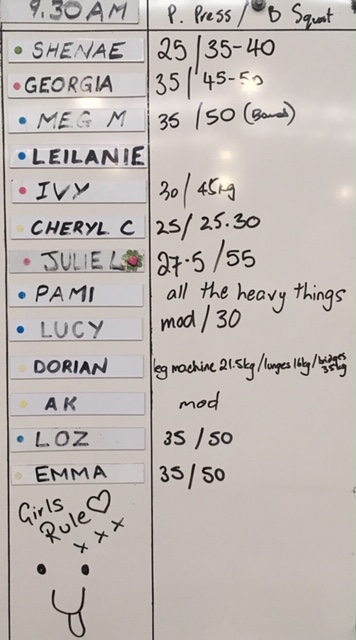 9.30AM P. Press / B Squat
SHENAE 25/35-40
GEORGIA 35/45-50
MEG M 35/50 (Band)
LEILANIE
IVY 30/45kg
CHERYL C 25/25.30
JULIE L 27.5/55
PAMI all the heavy things
LUCY mod/30
DORIAN leg machine 21.5kg/lunges 16kg/bridges 35kg
AK mod
LOZ 35/50
EMMA 35/50
Girls
Rule
x x x